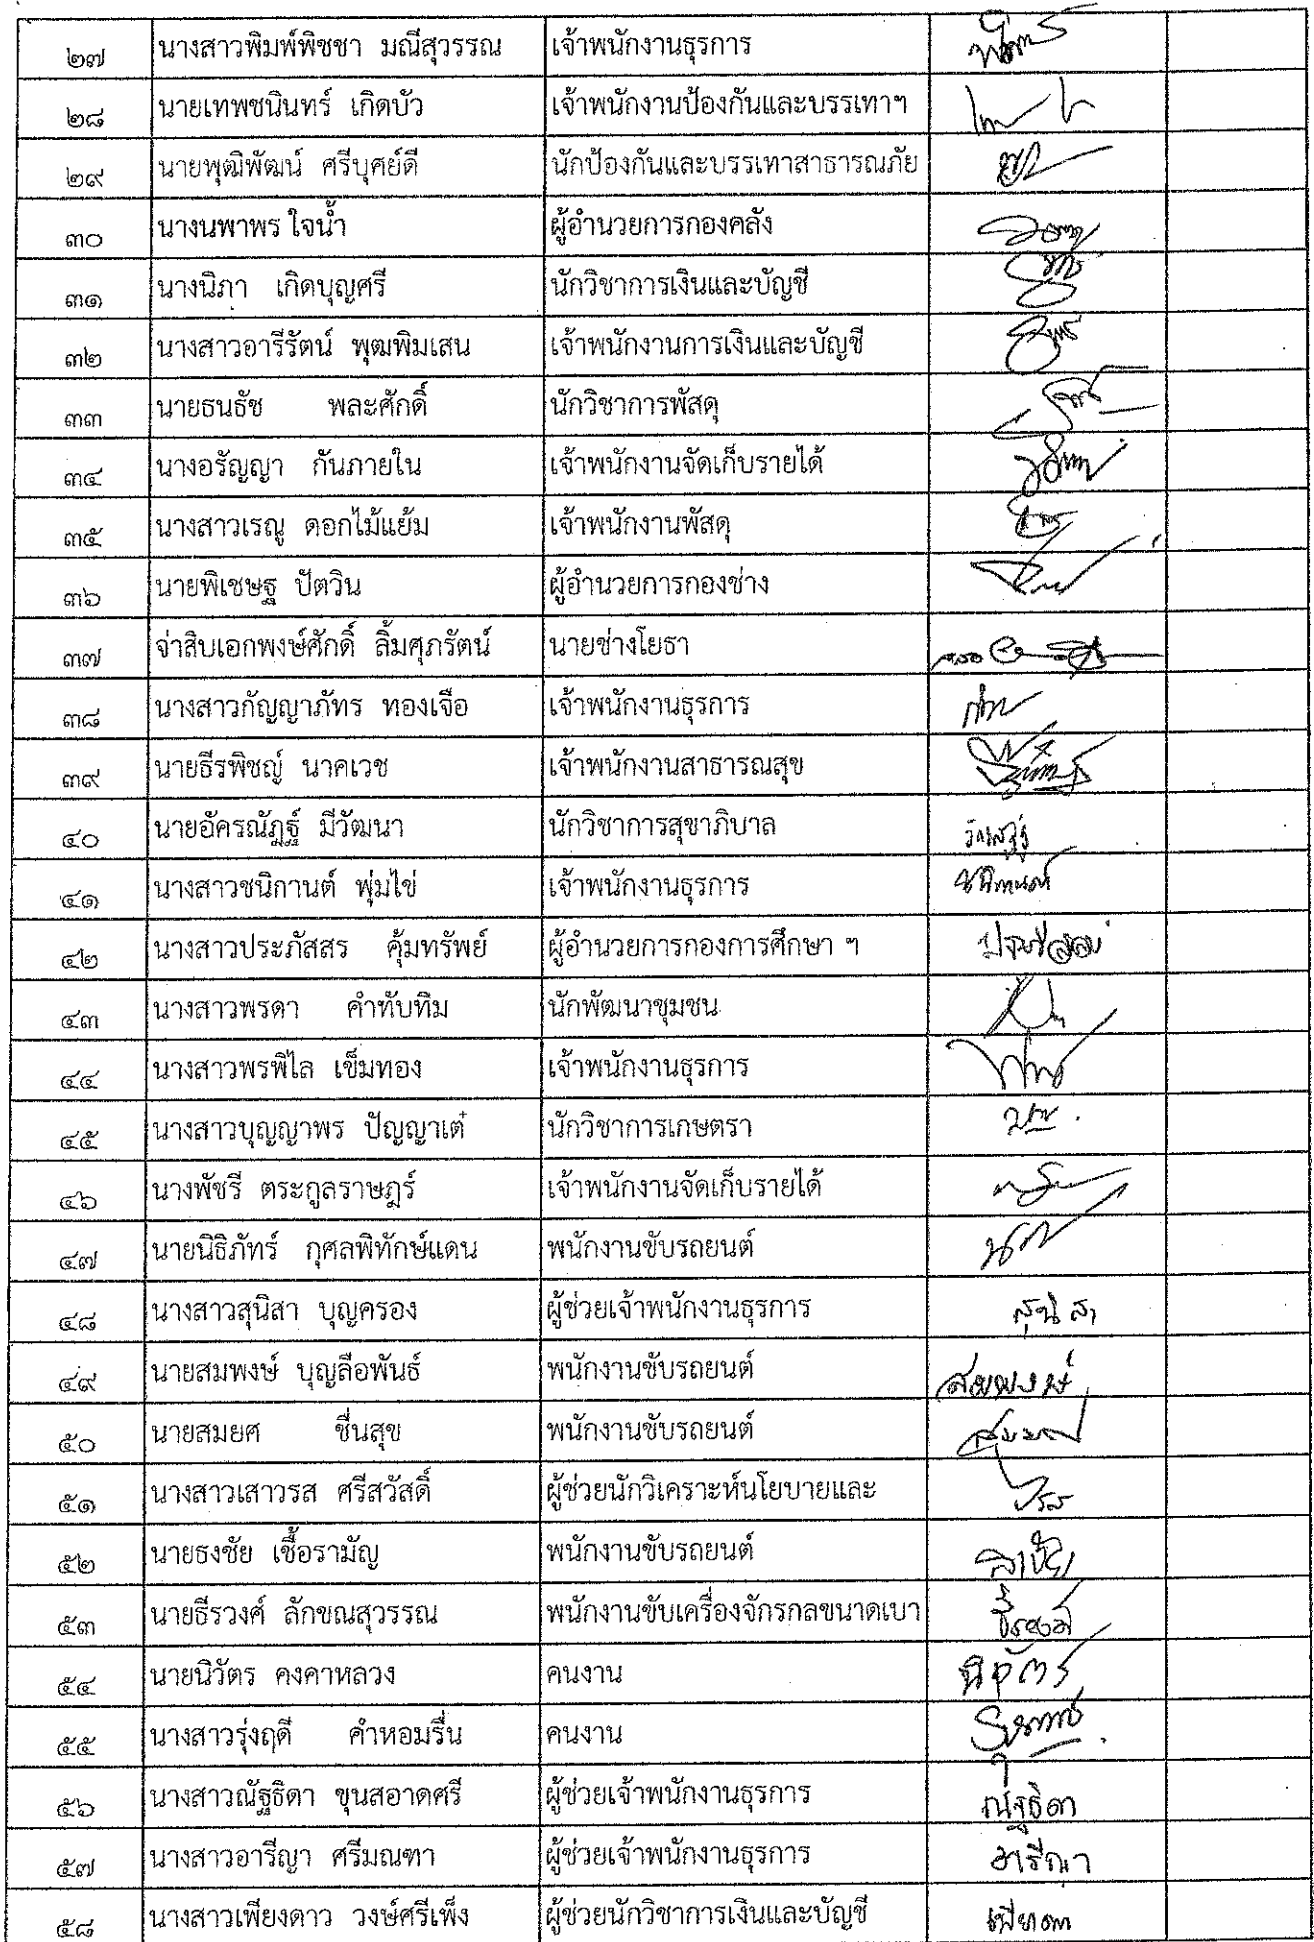 ๒๗ นางสาวพิมพ์พิชชา มณีสุวรรณ เจ้าพนักงานธุรการ
๒๘ นายเทพชนินทร์ เกิดบัว เจ้าพนักงานป้องกันและบรรเทาฯ
๒๙ นายพุฒิพัฒน์ ศรีบุศย์ดี นักป้องกันและบรรเทาสาธารณภัย
๓๐ นางนพาพร ใจน้ำ ผู้อำนวยการกองคลัง
๓๑ นางนิภา เกิดบุญศรี นักวิชาการเงินและบัญชี
๓๒ นางสาวอารีรัตน์ พุฒพิมเสน เจ้าพนักงานการเงินและบัญชี
๓๓ นายธนธัช พละศักดิ์ นักวิชาการพัสดุ
๓๔ นางอรัญญา กันภายใน เจ้าพนักงานจัดเก็บรายได้
๓๕ นางสาวเรณู ดอกไม้แย้ม เจ้าพนักงานพัสดุ
๓๖ นายพิเชษฐ ปัตวิน ผู้อำนวยการกองช่าง
๓๗ จ่าสิบเอกพงษ์ศักดิ์ ลิ้มศุภรัตน์ นายช่างโยธา
๓๘ นางสาวกัญญาภัทร ทองเจือ เจ้าพนักงานธุรการ
๓๙ นายธีรพิชญ์ นาคเวช เจ้าพนักงานสาธารณสุข
๔๐ นายอัครณัฏฐ์ มีวัฒนา นักวิชาการสุขาภิบาล
๔๑ นางสาวชนิกานต์ พุ่มไข่ เจ้าพนักงานธุรการ ชนิกานต์
๔๒ นางสาวประภัสสร คุ้มทรัพย์ ผู้อำนวยการกองการศึกษา ฯ
๔๓ นางสาวพรดา คำทับทิม นักพัฒนาชุมชน
๔๔ นางสาวพรพิไล เข็มทอง เจ้าพนักงานธุรการ
๔๕ นางสาวบุญญาพร ปัญญาเต๋ นักวิชาการเกษตรา
๔๖ นางพัชรี ตระกูลราษฎร์ เจ้าพนักงานจัดเก็บรายได้
๔๗ นายนิธิภัทร์ กุศลพิทักษ์แดน พนักงานขับรถยนต์
๔๘ นางสาวสุนิสา บุญครอง ผู้ช่วยเจ้าพนักงานธุรการ สุนิสา
๔๙ นายสมพงษ์ บุญลือพันธ์ พนักงานขับรถยนต์ สมพงษ์
๕๐ นายสมยศ ชื่นสุข พนักงานขับรถยนต์
๕๑ นางสาวเสาวรส ศรีสวัสดิ์ ผู้ช่วยนักวิเคราะห์นโยบายและ
๕๒ นายธงชัย เชื้อรามัญ พนักงานขับรถยนต์
๕๓ นายธีรวงศ์ ลักขณสุวรรณ พนักงานขับเครื่องจักรกลขนาดเบา ธีรวงศ์
๕๔ นายนิวัตร คงคาหลวง คนงาน นิวัตร
๕๕ นางสาวรุ่งฤดี คำหอมรื่น คนงาน
๕๖ นางสาวณัฐธิดา ขุนสอาดศรี ผู้ช่วยเจ้าพนักงานธุรการ ณัฐธิดา
๕๗ นางสาวอารีญา ศรีมณฑา ผู้ช่วยเจ้าพนักงานธุรการ อารีญา
๕๘ นางสาวเพียงดาว วงษ์ศรีเพ็ง ผู้ช่วยนักวิชาการเงินและบัญชี